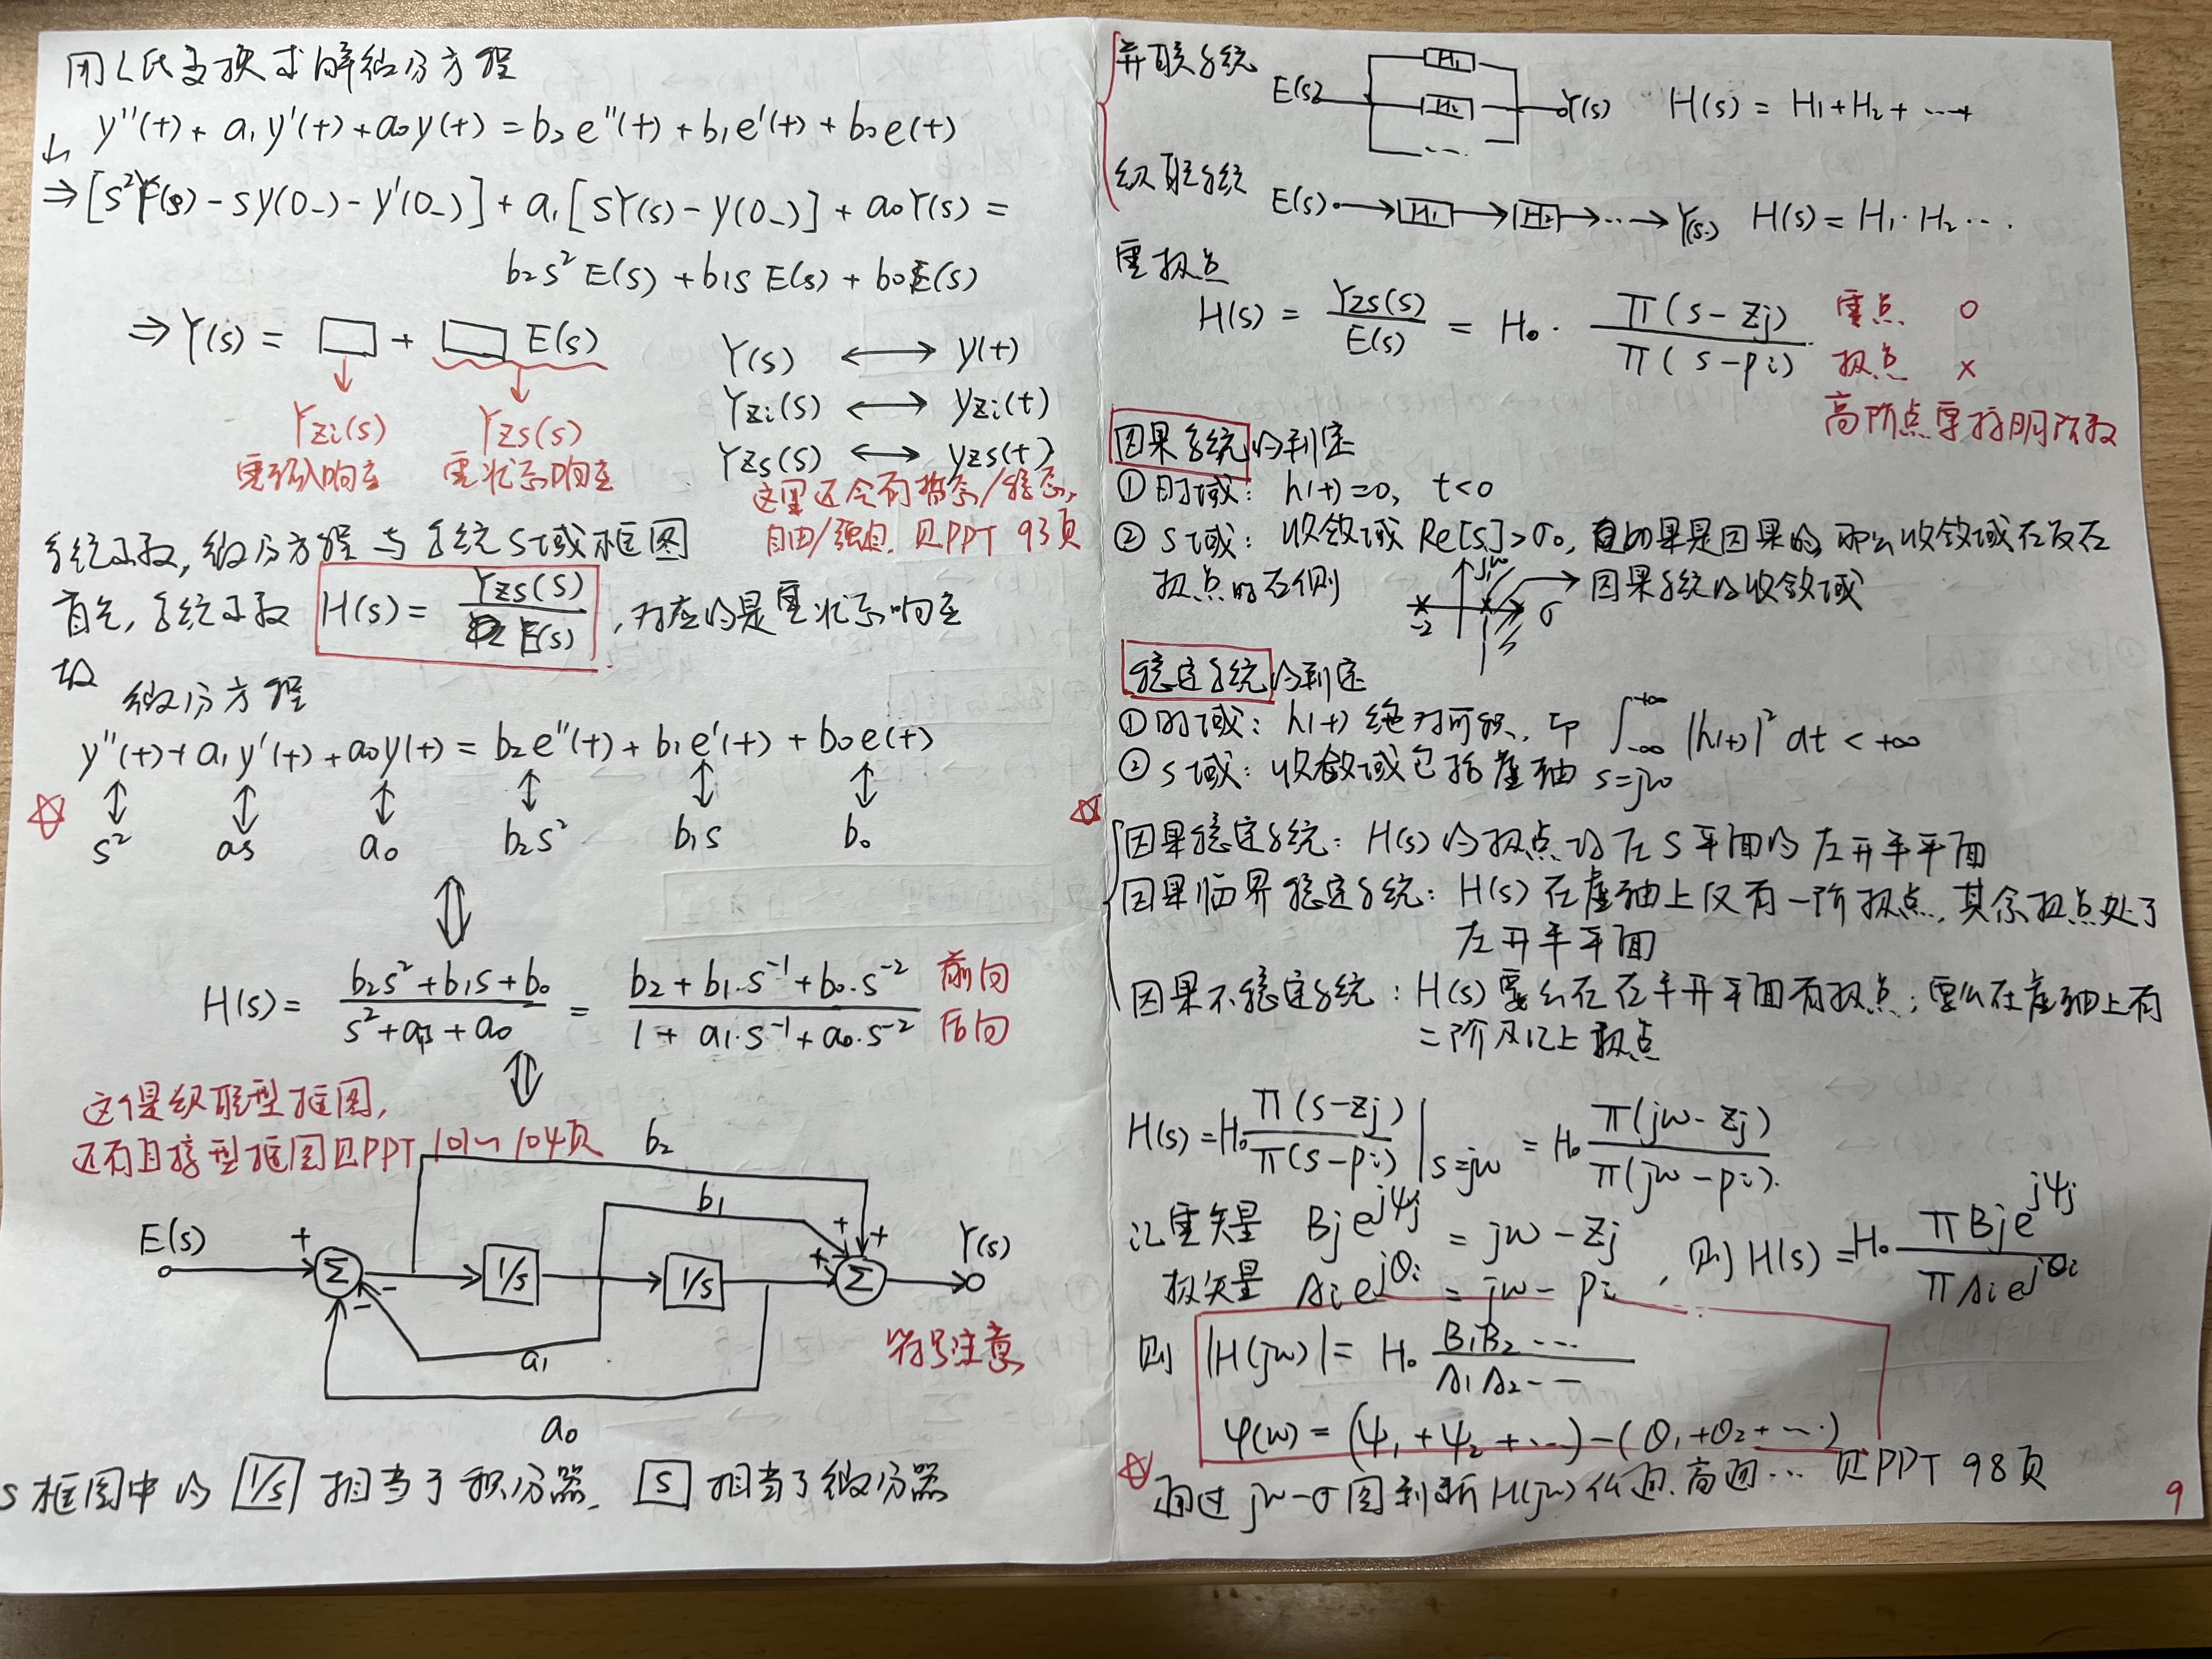 用L氏变换求解微分方程
y''(t) + a₁y'(t) + a₀y(t) = b₂e''(t) + b₁e'(t) + b₀e(t)
⇒ [s²Y(s) - sy(0₋) - y'(0₋)] + a₁[sY(s) - y(0₋)] + a₀Y(s) =
b₂s²E(s) + b₁sE(s) + b₀E(s)
⇒ Y(s) = □ + □ E(s)
Yzi(s) Yzs(s)
零输入响应 零状态响应
Y(s) ↔ y(t)
Yzi(s) ↔ yzi(t)
Yzs(s) ↔ yzs(t)
这里还会有暂态/稳态,
自由/强迫, 见PPT 93页
系统函数, 微分方程与系统S域框图
首先, 系统函数 H(s) = Yzs(s)/E(s), 对应的是零状态响应
故
微分方程
y''(t) + a₁y'(t) + a₀y(t) = b₂e''(t) + b₁e'(t) + b₀e(t)
☆ ↕ ↕ ↕ ↕ ↕ ↕
s² as a₀ b₂s² b₁s b₀
⇕
H(s) = (b₂s² + b₁s + b₀)/(s² + a₁s + a₀) = (b₂ + b₁·s⁻¹ + b₀·s⁻²)/(1 + a₁·s⁻¹ + a₀·s⁻²) 前向 后向
⇕
这个是级联型框图,
还有直接型框图见PPT 101~104页
b₂
b₁
E(s) + Σ 1/s 1/s Σ Y(s)
- -
+ + + +
a₁
符号注意
a₀
S框图中的 1/s 相当于积分器, s 相当于微分器
并联系统 E(s) H₁ H₂ … Y(s) H(s) = H₁ + H₂ + …
级联系统 E(s) → H₁ → H₂ → … → Y(s) H(s) = H₁·H₂ ….
零极点
H(s) = Yzs(s)/E(s) = H₀ · π(s-zj)/π(s-pi)
零点 ○
极点 ×
高阶点要标明阶数
因果系统的判定
① 时域: h(t)=0, t<0
② s域: 收敛域 Re[s]>σ₀, 如果是因果的, 那么收敛域在最右
极点的右侧
jω σ -2 → 因果系统的收敛域
稳定系统的判定
① 时域: h(t)绝对可积, 即 ∫₋∞⁺∞ |h(t)|² dt < +∞
② s域: 收敛域包括虚轴 s=jω
☆
因果稳定系统: H(s)的极点均在S平面的左开半平面
因果临界稳定系统: H(s)在虚轴上仅有一阶极点, 其余极点处于
左开半平面
因果不稳定系统: H(s)要么在右半开平面有极点; 要么在虚轴上有
二阶及以上极点
H(s) = H₀ π(s-zj)/π(s-pi) |s=jω = H₀ π(jω-zj)/π(jω-pi).
记零矢量 Bj e^{jψj} = jω - zj
极矢量 Ai e^{jθi} = jω - pi, 则 H(s) = H₀ πBj e^{jψj}/πAi e^{jθi}
则 |H(jω)| = H₀ B₁B₂…/A₁A₂…
φ(ω) = (ψ₁+ψ₂+…) - (θ₁+θ₂+…)
☆ 通过 jω-σ图判断H(jω)低通、高通… 见PPT 98页
9